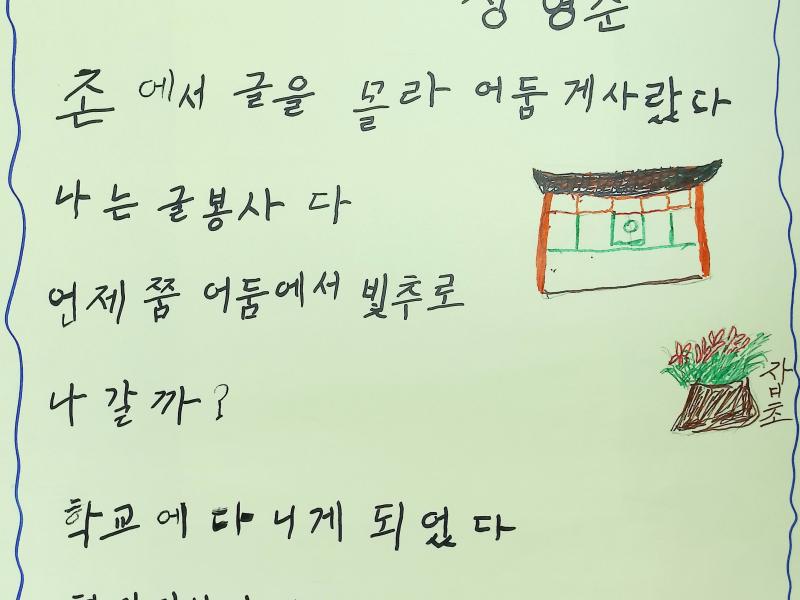 정영준
존에서 글을 몰라 어둠게사랐다
나는 글봉사다
언제쯤 어둠에서 빛추로
나갈까?
잡초
학교에 다니게 되었다